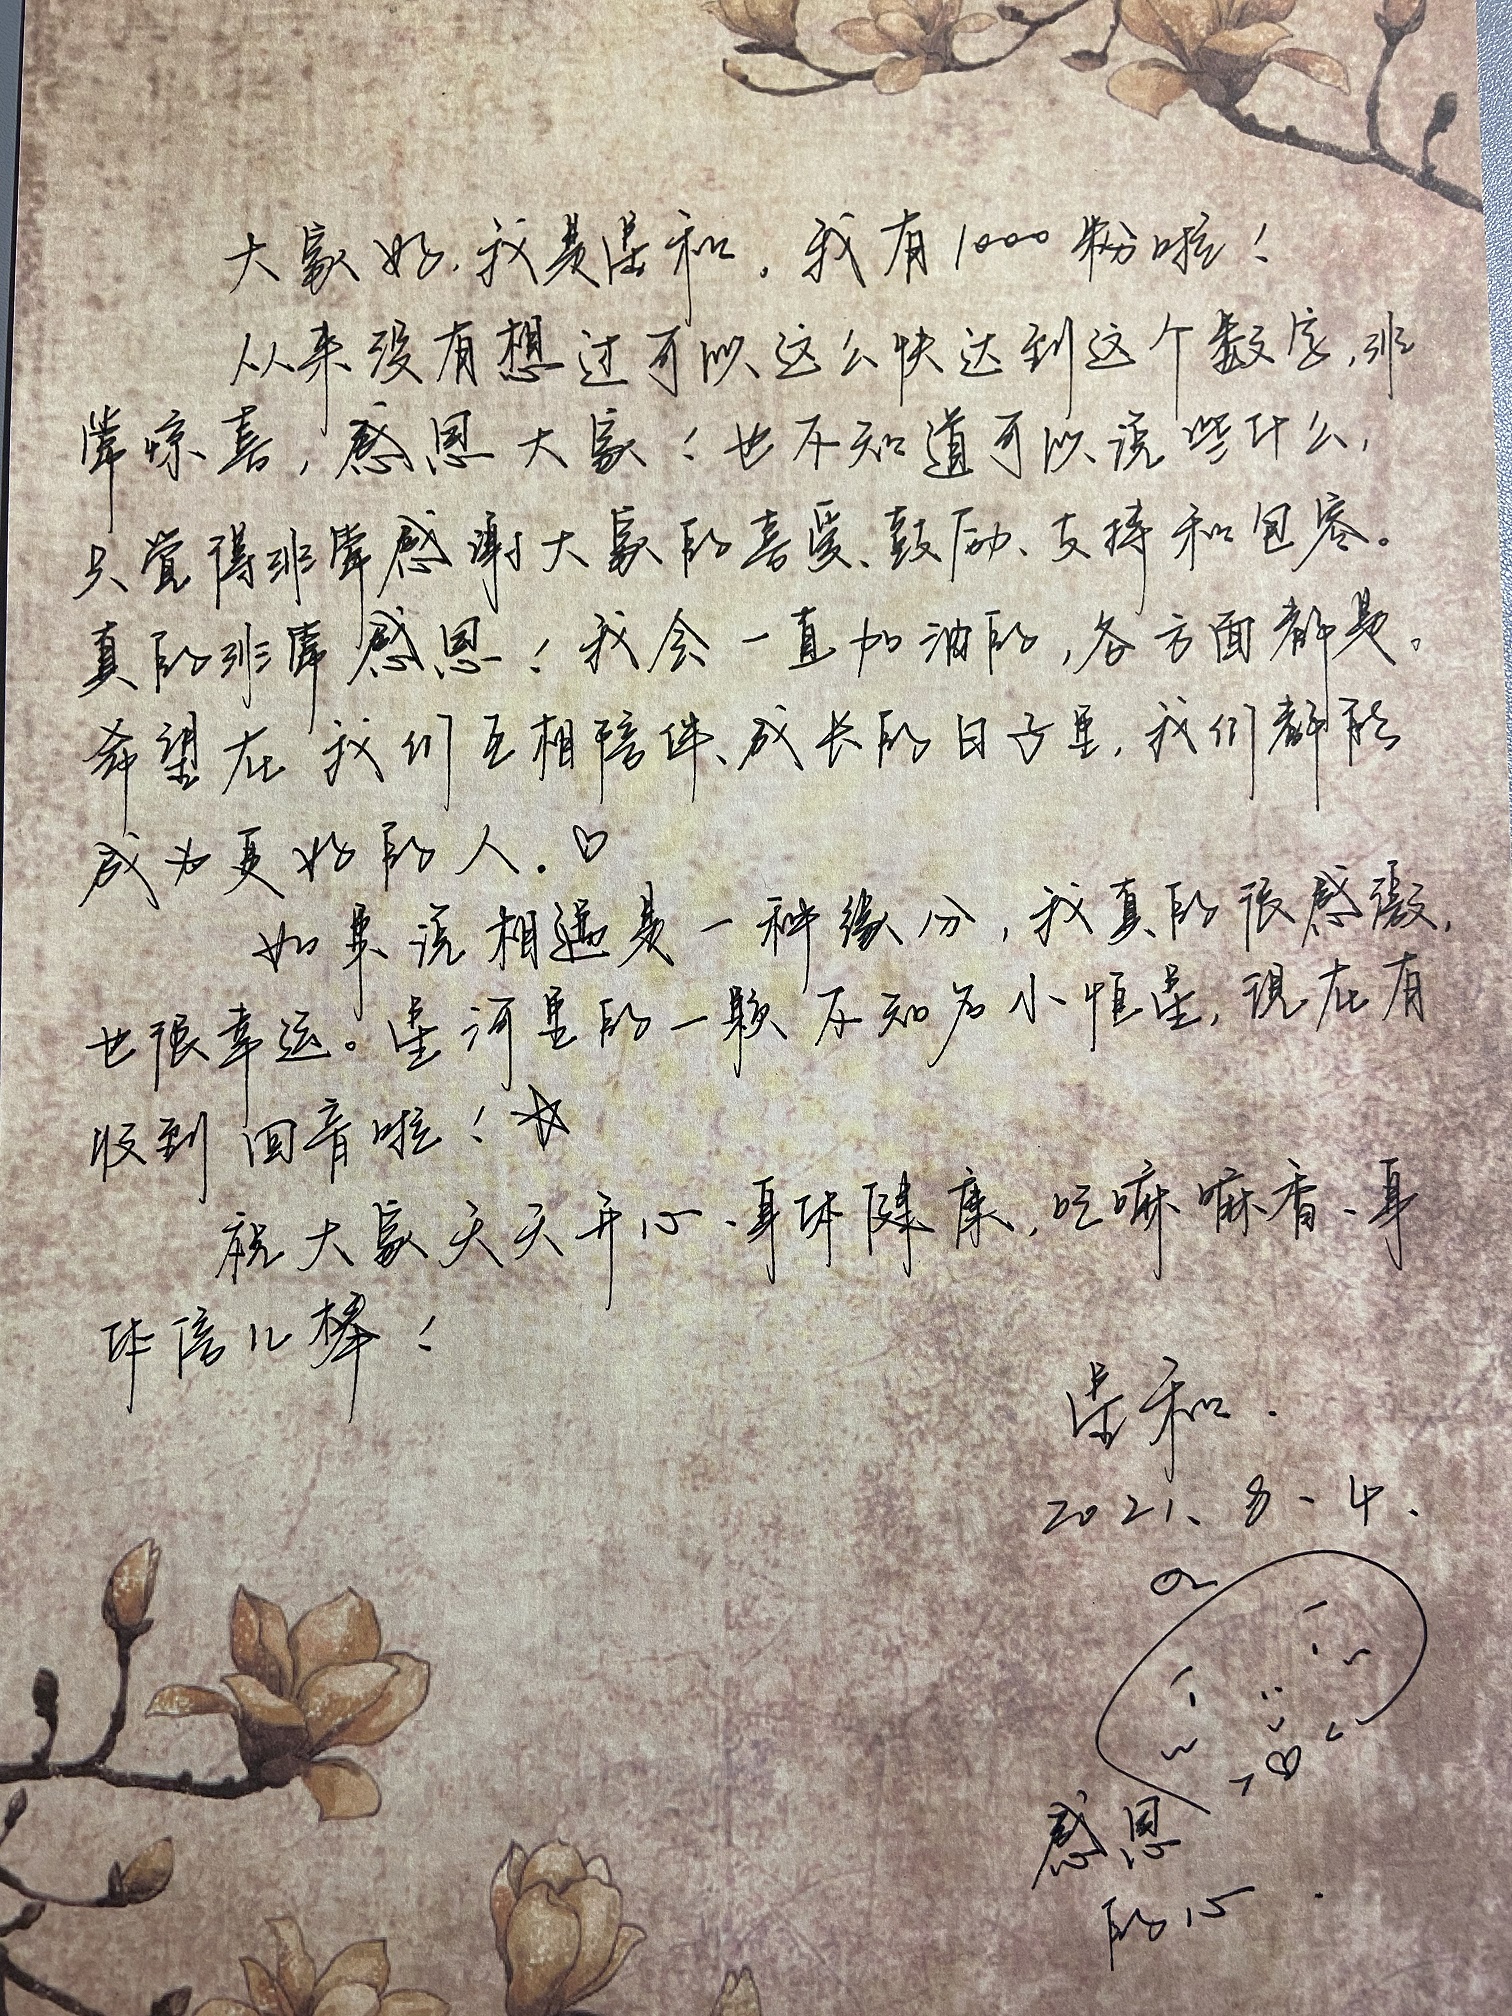 大家好，我是星和。我有1000粉啦！
从来没有想过可以这么快达到这个数字，非
常惊喜，感恩大家！也不知道可以说些什么，
只觉得非常感谢大家的喜爱、鼓励、支持和包容。
真的非常感恩！我会一直加油的，各方面都是。
希望在我们互相陪伴、成长的日子里，我们都能
成为更好的人。♡
如果说相遇是一种缘分，我真的很感激，
也很幸运。星河里的一颗不知名小恒星，现在有
收到回音啦！☆
祝大家天天开心、身体健康，吃嘛嘛香、身
体倍儿棒！
星和.
2021.8.4.
感恩
的心.